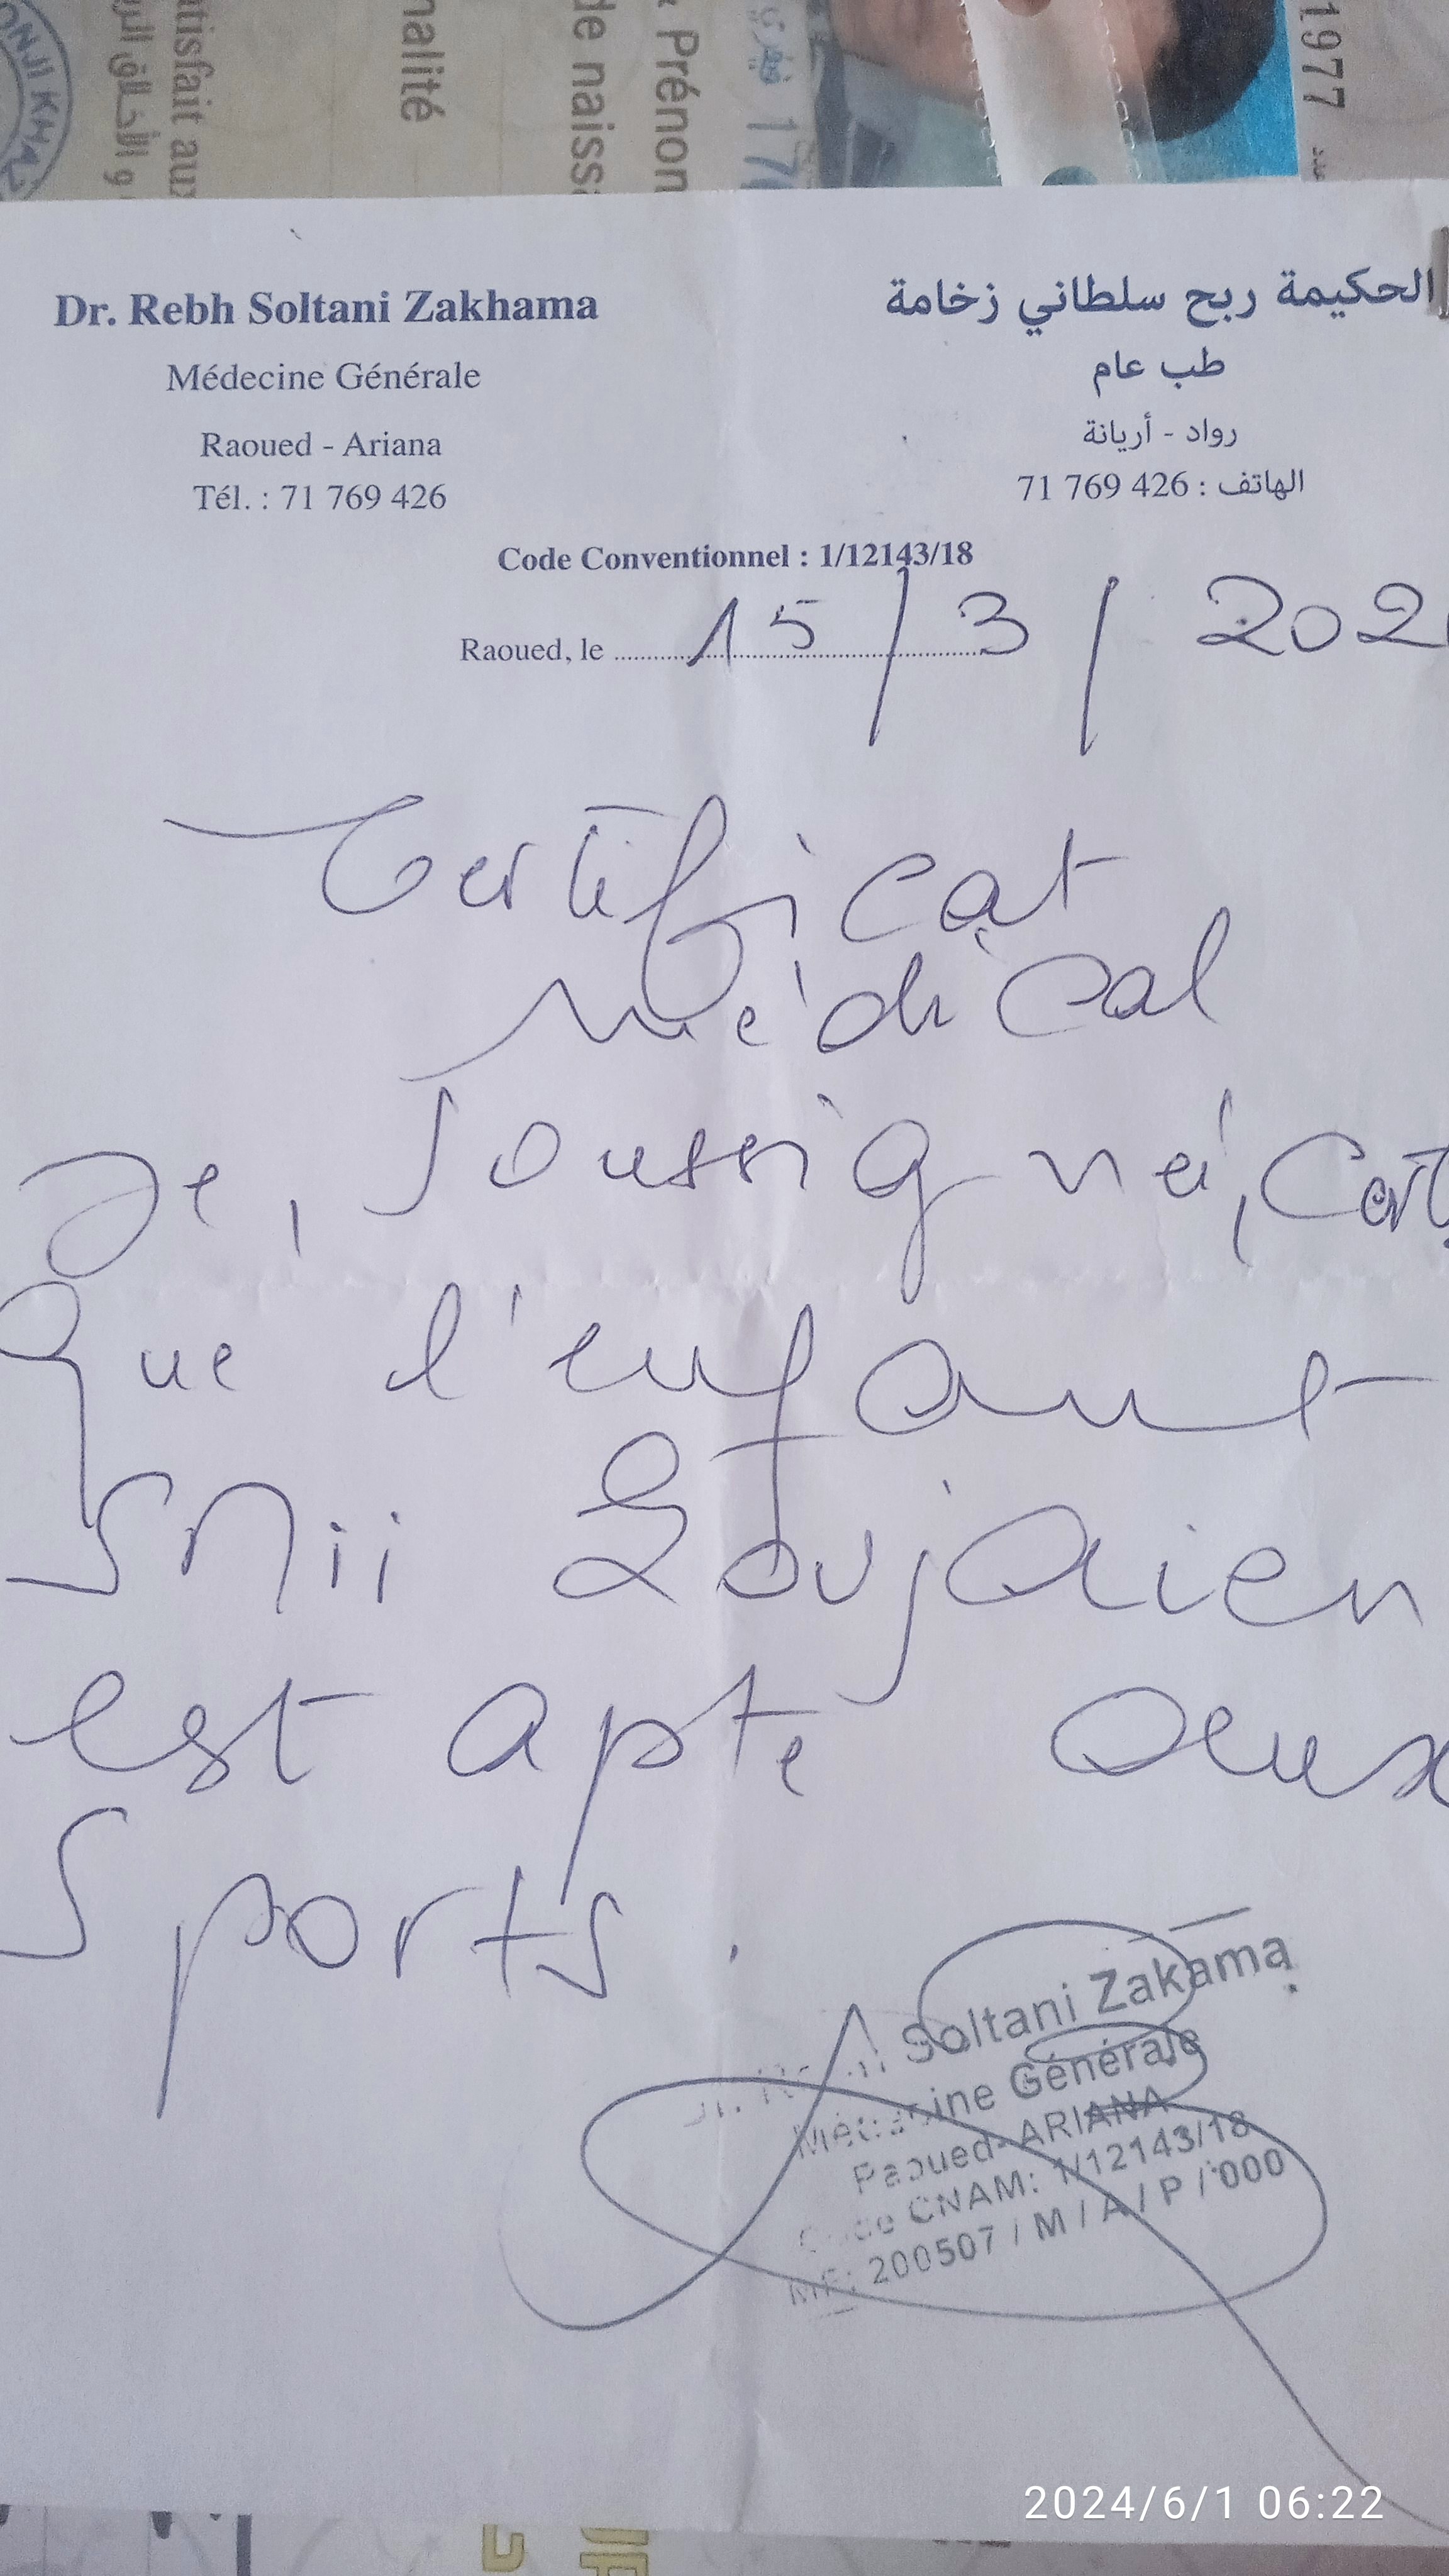 1977
Prénon
de naiss
nalité
atisfait aux
ONJI KHA
Dr. Rebh Soltani Zakhama
Médecine Générale
Raoued - Ariana
Tél. : 71 769 426
الحكيمة ربح سلطاني زخامة
طب عام
رواد - أريانة
الهاتف : 426 769 71
Code Conventionnel : 1/12143/18
Raoued, le 15/3/202
Certificat
médical
Je, soussigné, cert
que l'enfant
Snii Loujaien
est apte aux
sports.
Soltani Zakama
Médecine Générale
Raoued-ARIANA
Code CNAM: 1/12143/18
MF: 200507 / M / A / P / 000
2024/6/1 06:22